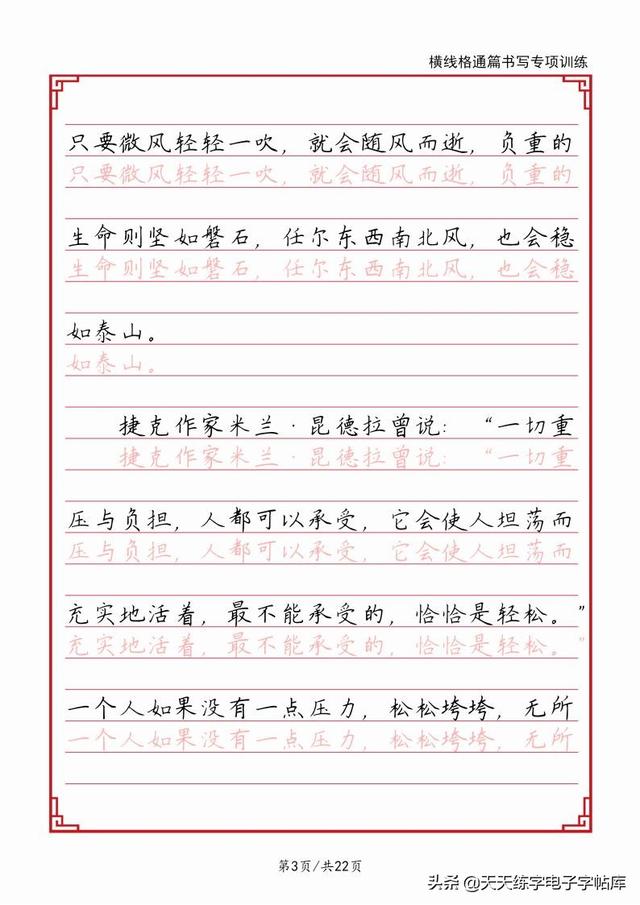 横线格通篇书写专项训练
只要微风轻轻一吹，就会随风而逝，负重的
只要微风轻轻一吹，就会随风而逝，负重的
生命则坚如磐石，任尔东西南北风，也会稳
生命则坚如磐石，任尔东西南北风，也会稳
如泰山。
如泰山。
捷克作家米兰·昆德拉曾说：“一切重
捷克作家米兰·昆德拉曾说：“一切重
压与负担，人都可以承受，它会使人坦荡而
压与负担，人都可以承受，它会使人坦荡而
充实地活着，最不能承受的，恰恰是轻松。”
充实地活着，最不能承受的，恰恰是轻松。”
一个人如果没有一点压力，松松垮垮，无所
一个人如果没有一点压力，松松垮垮，无所
第3页/共22页
头条@天天练字电子字帖库